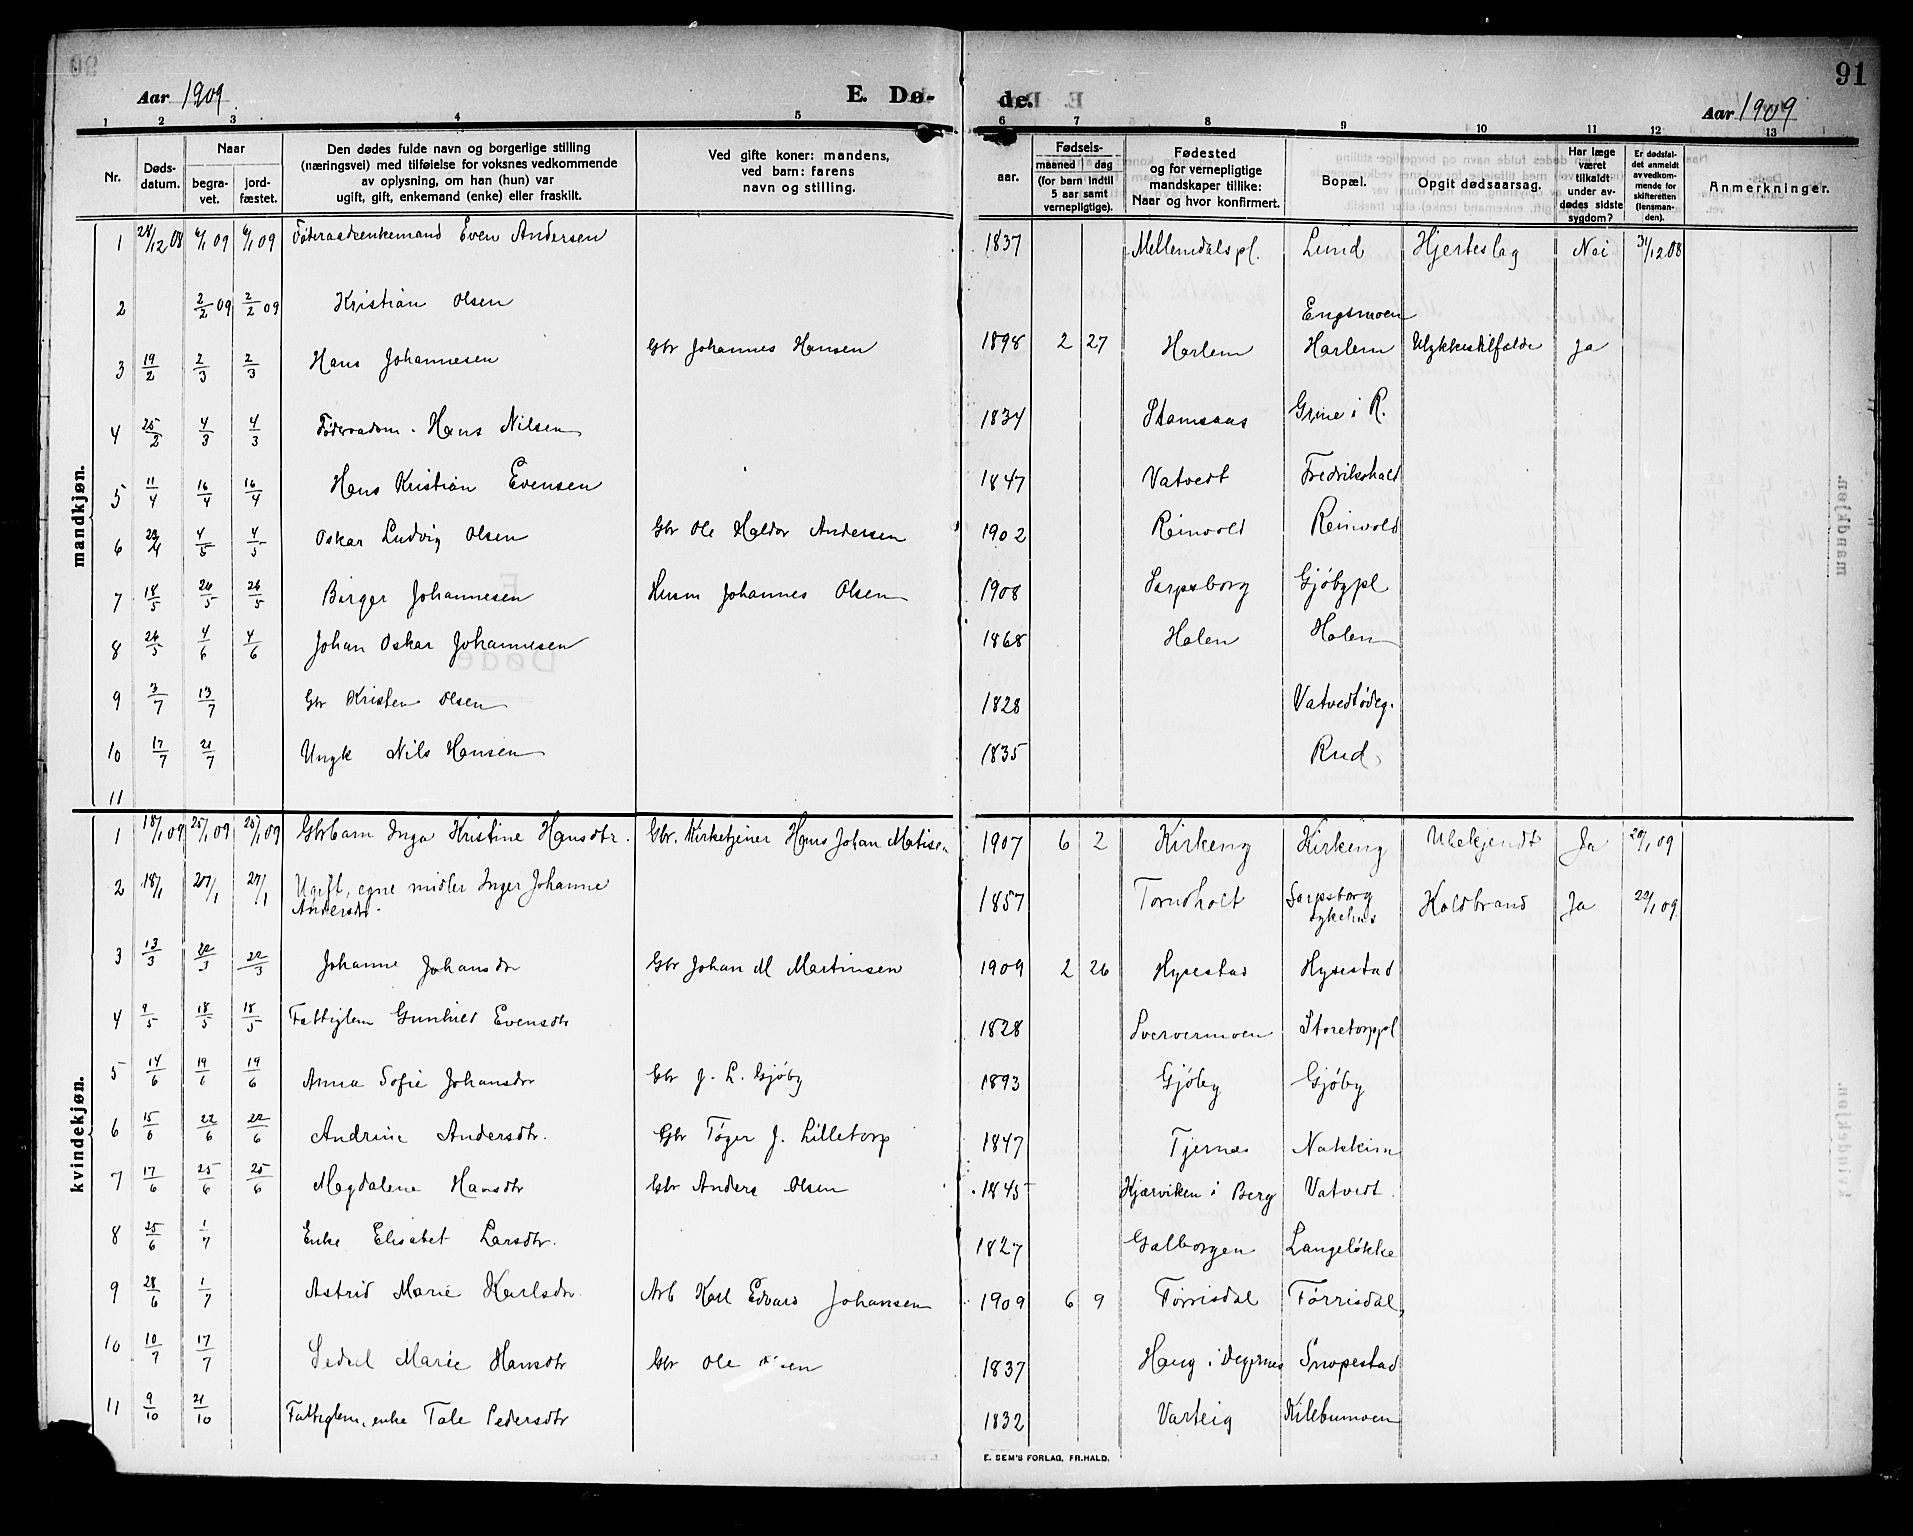 91
Aar 1909. E. Dø- de. Aar 1909
1 2 3 4 5 6 7 8 9 10 11 12 13
Nr. Døds-datum. Naar begra-vet. jord-fæstet. Den dødes fulde navn og borgerlige stilling (næringsvei) med tilføielse for voksnes vedkommende av oplysning, om han (hun) var ugift, gift, enkemand (enke) eller fraskilt. Ved gifte koner: mandens, ved barn: farens navn og stilling. Fødsels- aar. maaned dag (for barn indtil 5 aar samt vernepligtige). Fødested og for vernepligtige mandskaper tillike: Naar og hvor konfirmert. Bopæl. Opgit dødsaarsag. Har læge været tilkaldt under av-dødes sidste sygdom? Er dødsfal-det anmeldt av vedkom-mende for skifteretten (lensman-den). Anmerkninger.
mandkjøn.
1 28/12 08 6/1 09 6/1 09 Føderaadsenkemand Even Andersen 1837 Mellemdalspl. Lund Hjerteslag Nei 31/12 08
2 2/2 09 2/2 09 Kristian Olsen Engsmoen
3 19/2 2/3 2/3 Hans Johannesen Gbr Johannes Hansen 1898 2 27 Harlem Harlem Ulykkestilfælde Ja
4 25/2 4/3 4/3 Føderaadsm. Hans Nilsen 1834 Stomsaas Grine i R.
5 11/4 16/4 16/4 Hans Kristian Evensen 1847 Vatvedt Fredrikshald
6 4/5 4/5 Oskar Ludvig Olsen Gbr Ole Haldor Andersen 1902 Reinvold Reinvold
7 18/5 26/5 26/5 Birger Johannesen Husm Johannes Olsen 1908 Sarpsborg Gjøbypl
8 26/5 4/6 4/6 Johan Oskar Johannesen 1868 Holen Holen
9 3/7 13/7 Gbr Kristen Olsen 1828 Vatvedtødeg.
10 17/7 21/7 Ungk Nils Hansen 1835 Rud
11
kvindekjøn.
1 18/1 09 25/1 09 25/1 09 Gbrbarn Inga Kristine Hansdtr. Gbr. Kirketjener Hans Johan Matisen 1907 6 2 Kirkeng Kirkeng Ubekjendt Ja 20/1 09
2 18/1 27/1 27/1 Ugift, egne midler Inger Johanne Andersdtr. 1857 Tornsholt Sarpsborg sykehus Koldbrand Ja 22/1 09
3 13/3 22/3 22/3 Johanne Johansdtr Gbr Johan M Martinsen 1909 2 26 Hysestad Hysestad
4 9/5 18/5 18/5 Fattiglem Gunhild Evensdtr 1828 Sververmoen Storetorppl
5 14/6 19/6 19/6 Anna Sofie Johansdtr Gbr J. L. Gjøby 1893 Gjøby Gjøby
6 15/6 22/6 22/6 Andrine Andersdtr. Gbr Tøger J. Lilletorp 1847 Tjernes Natskim
7 17/6 25/6 25/6 Magdalene Hansdtr Gbr Anders Olsen 1845 Kjærviken i Berg Vatvedt
8 25/6 1/7 Enke Elisabet Larsdtr. 1827 Galborgen Langeløkke
9 28/6 1/7 Astrid Marie Karlsdtr. Arb Karl Edvard Johansen 1909 6 9 Tørrisdal Tørrisdal
10 10/7 17/7 Sedsel Marie Hansdtr Gbr Ole 1837 Haug i Degernes Snopestad
11 9/10 21/10 Fattiglem, enke Tale Pedersdtr 1832 Varteig Kilebumoen
E. SEM'S FORLAG, FR.HALD.